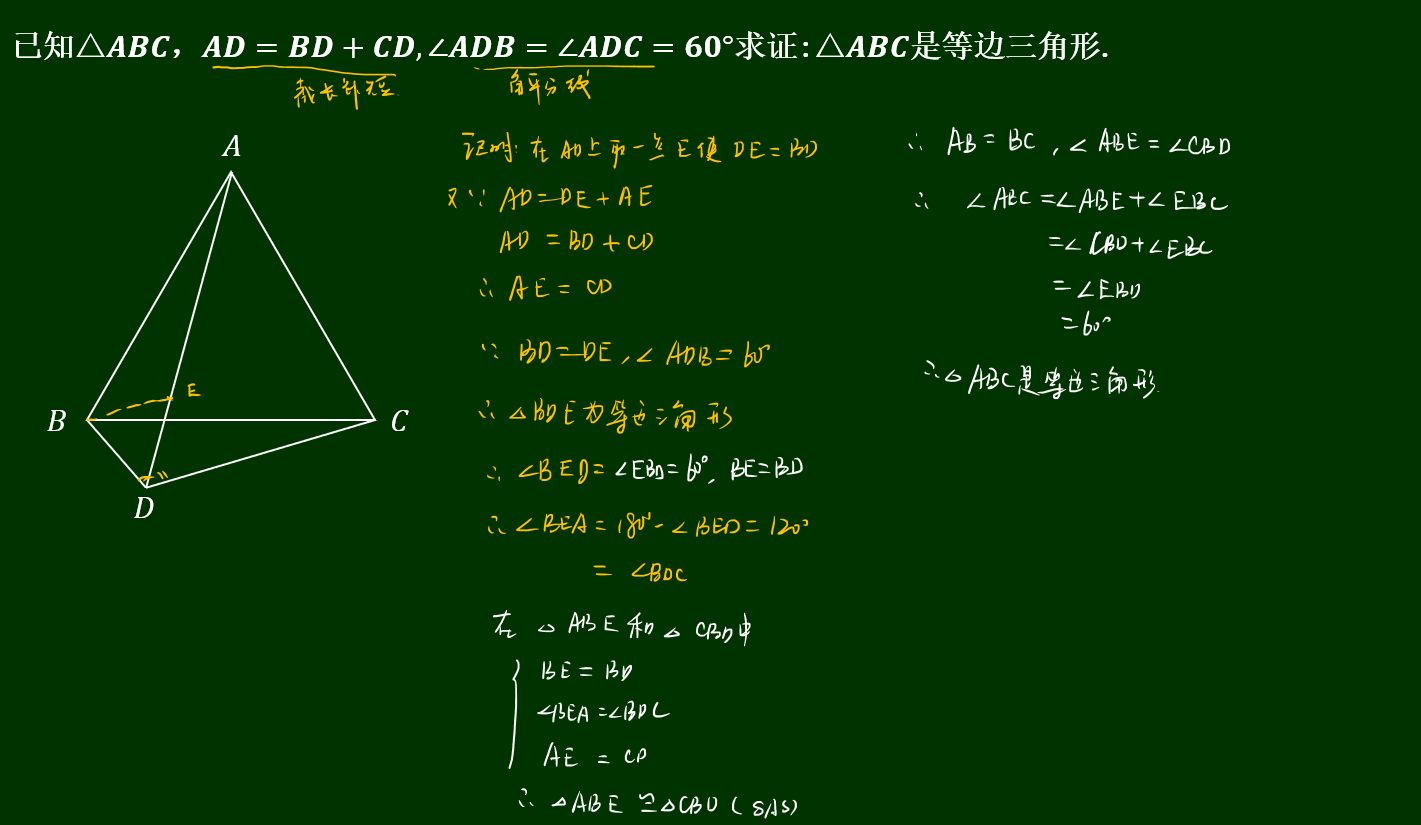 已知△ABC，AD = BD + CD,∠ADB = ∠ADC = 60°求证:△ABC是等边三角形.
截长补短
角平分线
A
B
C
D
E
证明: 在AD上取一点E使DE=BD
又∵ AD=DE+AE
AD=BD+CD
∴AE=CD
∵ BD=DE,∠ADB=60°
∴△BDE为等边三角形
∴∠BED=∠EBD=60°,BE=BD
∴∠BEA=180°-∠BED=120°
=∠BDC
在△ABE和△CBD中
BE=BD
∠BEA=∠BDC
AE=CD
∴△ABE≌△CBD(SAS)
∴ AB=BC,∠ABE=∠CBD
∴ ∠ABC=∠ABE+∠EBC
=∠CBD+∠EBC
=∠EBD
=60°
∴△ABC是等边三角形.